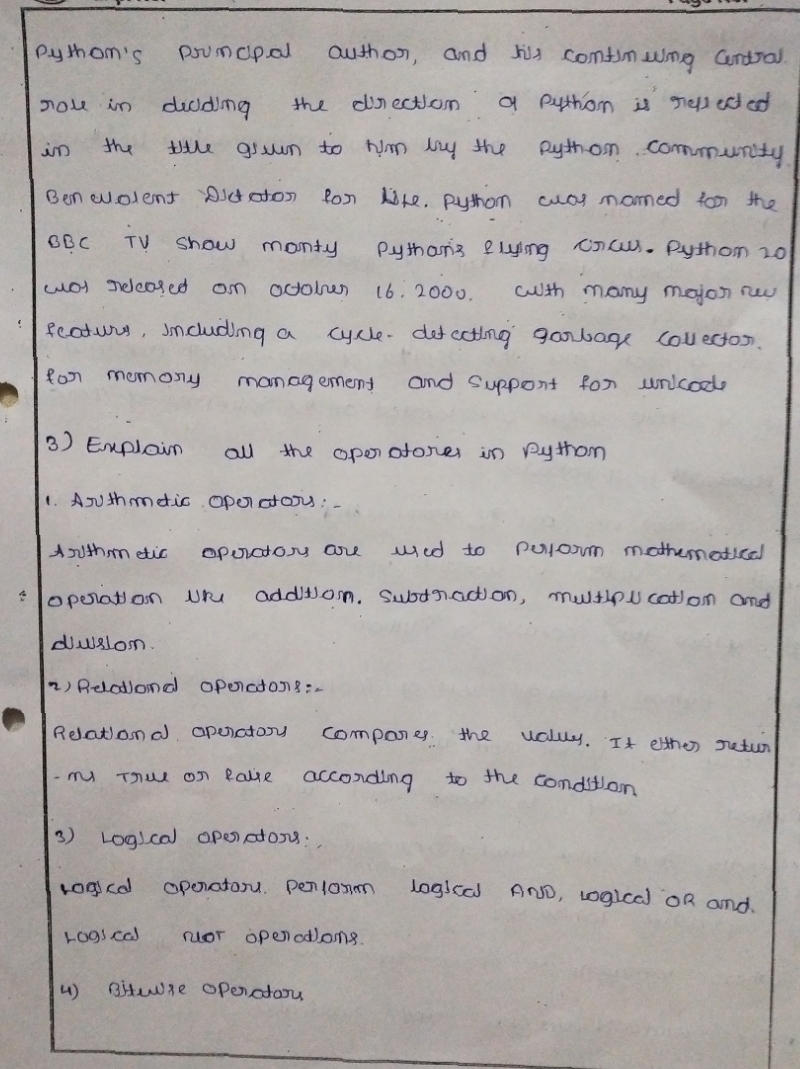 Python's principal author, and his continuing Central
role in deciding the direction of Python is reflected
in the title given to him by the Python community
Benevolent Dictator for life. Python was named for the
BBC TV show monty Python's flying circus. Python 20
was released on october 16. 2000. with many major new
features, Including a cycle-detecting garbage collector.
for memory management and support for unicode
3) Explain all the operatores in Python
1. Arithmetic operators:-
Arithmetic operators are used to perform mathematical
operation like addition. Subtraction, multiplication and
division.
2) Relational operators:-
Relational operators compares the values. It either retur
-ns True or false according to the condition
3) Logical operators:.
Logical operators. Perform logical AND, logical OR and.
Logical NOT operations.
4) Bitwise operators